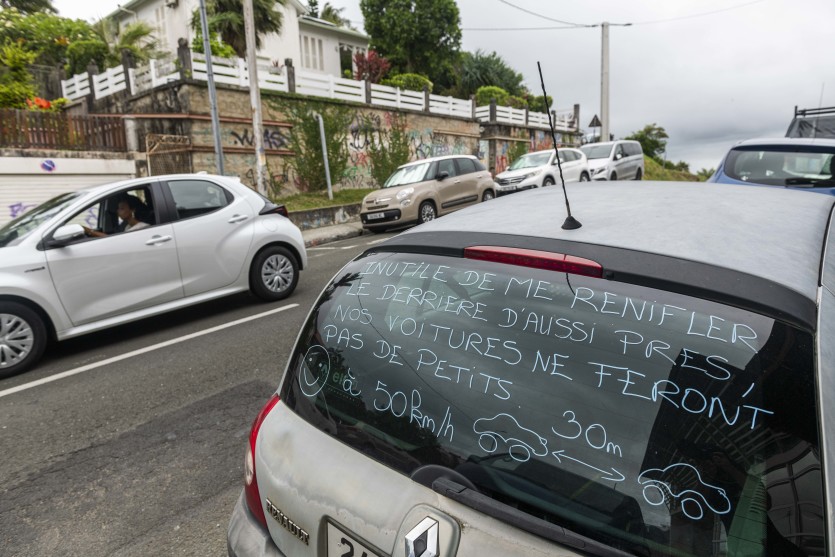 INUTILE DE ME RENIFLER
LE DERRIÈRE D'AUSSI PRÈS,
NOS VOITURES NE FERONT
PAS DE PETITS.
à 50km/h
30m
RENAULT